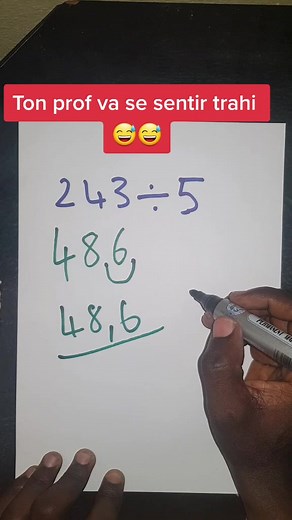 Ton prof va se sentir trahi
😅😅
243÷5
486
48,6